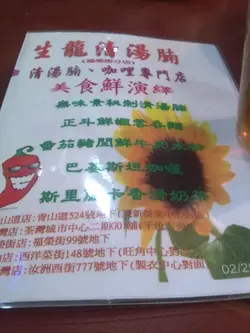 生龍清湯腩
(福榮街分店)
清湯腩、咖喱專門店
美食鮮演繹
無味素秘制清湯腩
正斗鮮蝦雲吞麵
番茄豬閏鮮牛
巴基斯坦咖喱
斯里蘭卡香滑奶茶
山道店:青山道524號地下
灣店:荃灣城市中心二期G01舖
榮街店:福榮街99號地下
店:西洋菜街148號地下(旺角中心對
灣店:汝洲西街777號地下(製衣中心對面
02/2